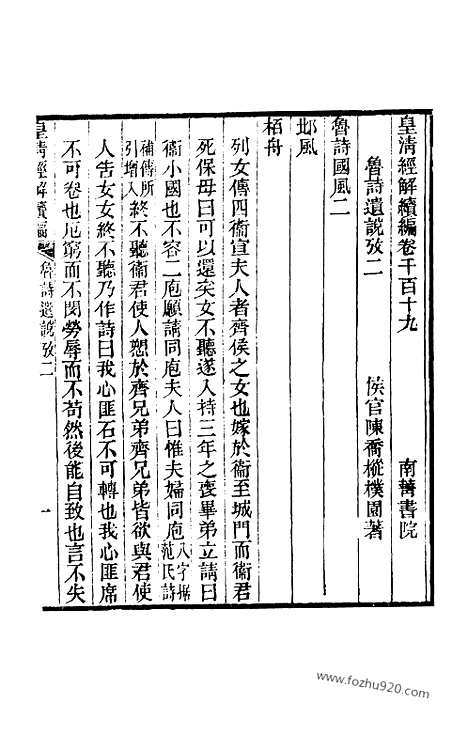 皇清經解續編卷千百十九　南菁書院
魯詩遺說攷二　侯官陳喬樅樸園著
魯詩國風二
邶風
栢舟
列女傳四衞宣夫人者齊侯之女也嫁於衞至城門而衞君
死保母曰可以還矣女不聽遂入持三年之喪畢弟立請曰
衞小國也不容二庖願請同庖夫人曰惟夫婦同庖八字據范氏詩
補傳所引增入終不聽衞君使人愬於齊兄弟齊兄弟皆欲與君使
人告女女終不聽乃作詩曰我心匪石不可轉也我心匪席
不可卷也厄窮而不閔勞辱而不苟然後能自致也言不失
皇清經解續編　魯詩遺說攷二　一
www.fozhu920.com